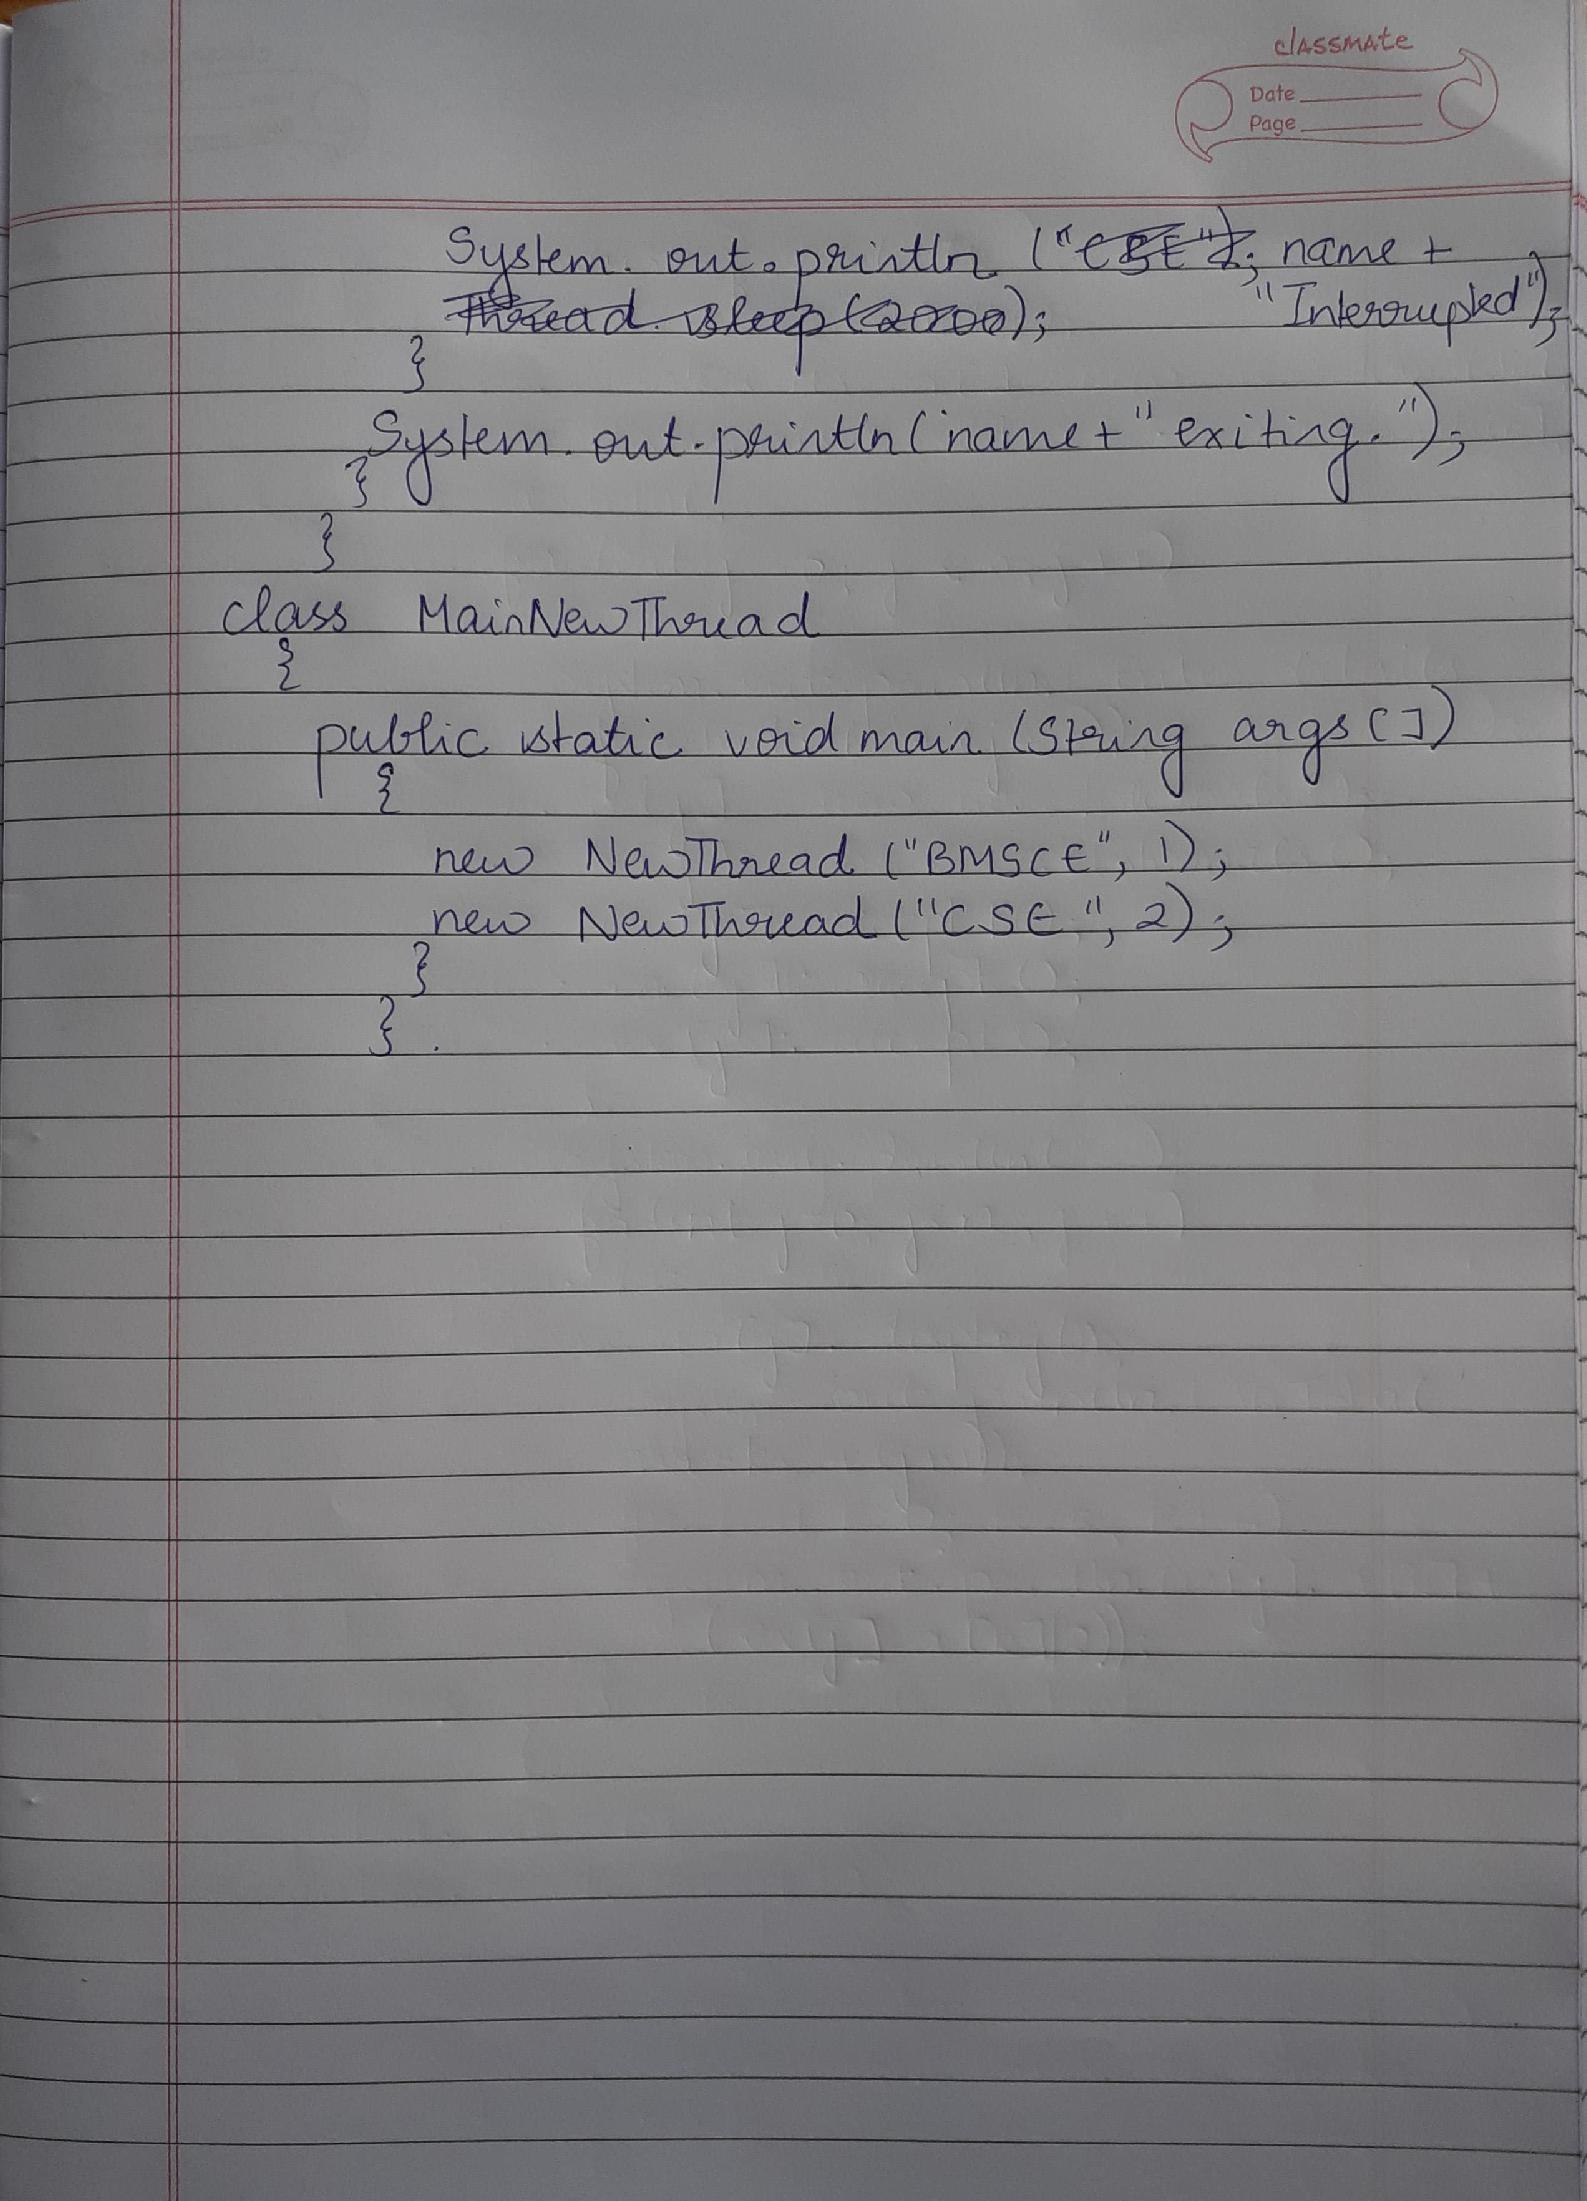 classmate
Date
Page
System.out.println ("CSE"); name +
Thread.sleep(2000); "Interrupted");
}
System.out.println(name+" exiting.");
}
}
class MainNewThread
{
public static void main (String args[])
{
new NewThread ("BMSCE", 1);
new NewThread ("CSE", 2);
}
}